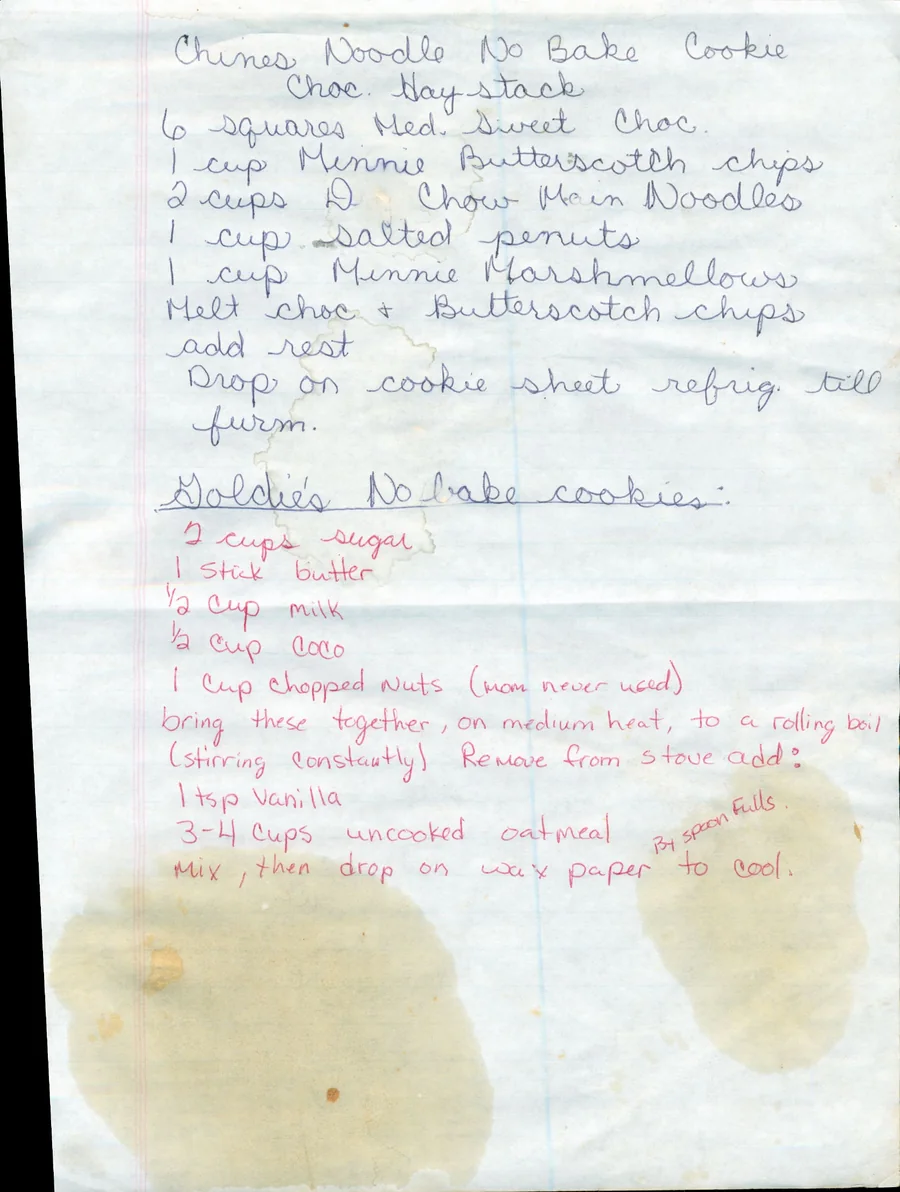 Chines Noodle No Bake Cookie
Choc. Haystack
6 squares Med. Sweet Choc.
1 cup Minnie Butterscotch chips
2 cups D Chow Main Noodles
1 cup salted penuts
1 cup Minnie Marshmellows
Melt choc & Butterscotch chips
add rest
Drop on cookie sheet refrig. till
furm.
Goldie's No bake cookies:
2 cups sugar
1 stick butter
1/2 cup milk
1/2 cup coco
1 cup chopped nuts (mom never used)
bring these together, on medium heat, to a rolling boil
(stirring constantly) Remove from stove add:
1 tsp vanilla
3-4 cups uncooked oatmeal
By spoon fulls.
Mix, then drop on wax paper to cool.